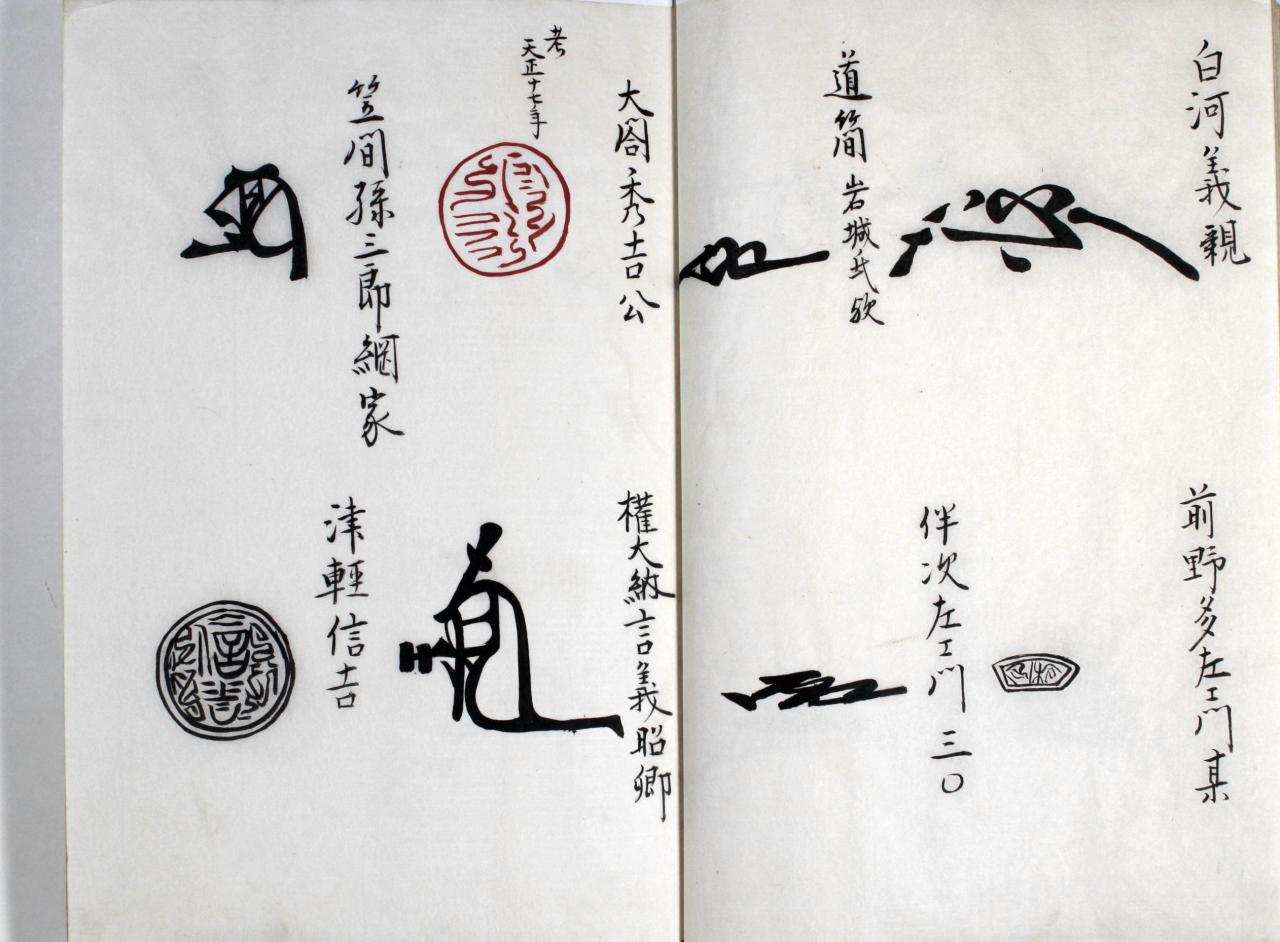 白河義親
道簡 岩城氏欤
前野多左エ門某
伴次左エ門三〇
大閤秀吉公
考
天正十七年
笠間孫三郎綱家
權大納言義昭卿
津輕信吉
信吉